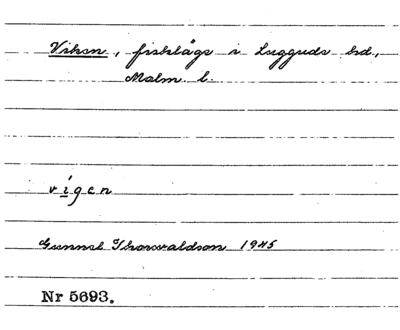 Viken, fiskläge i Luggude hd.,
Malm. l.
vigen
Gunnel Thorwaldson 1945
Nr 5693.